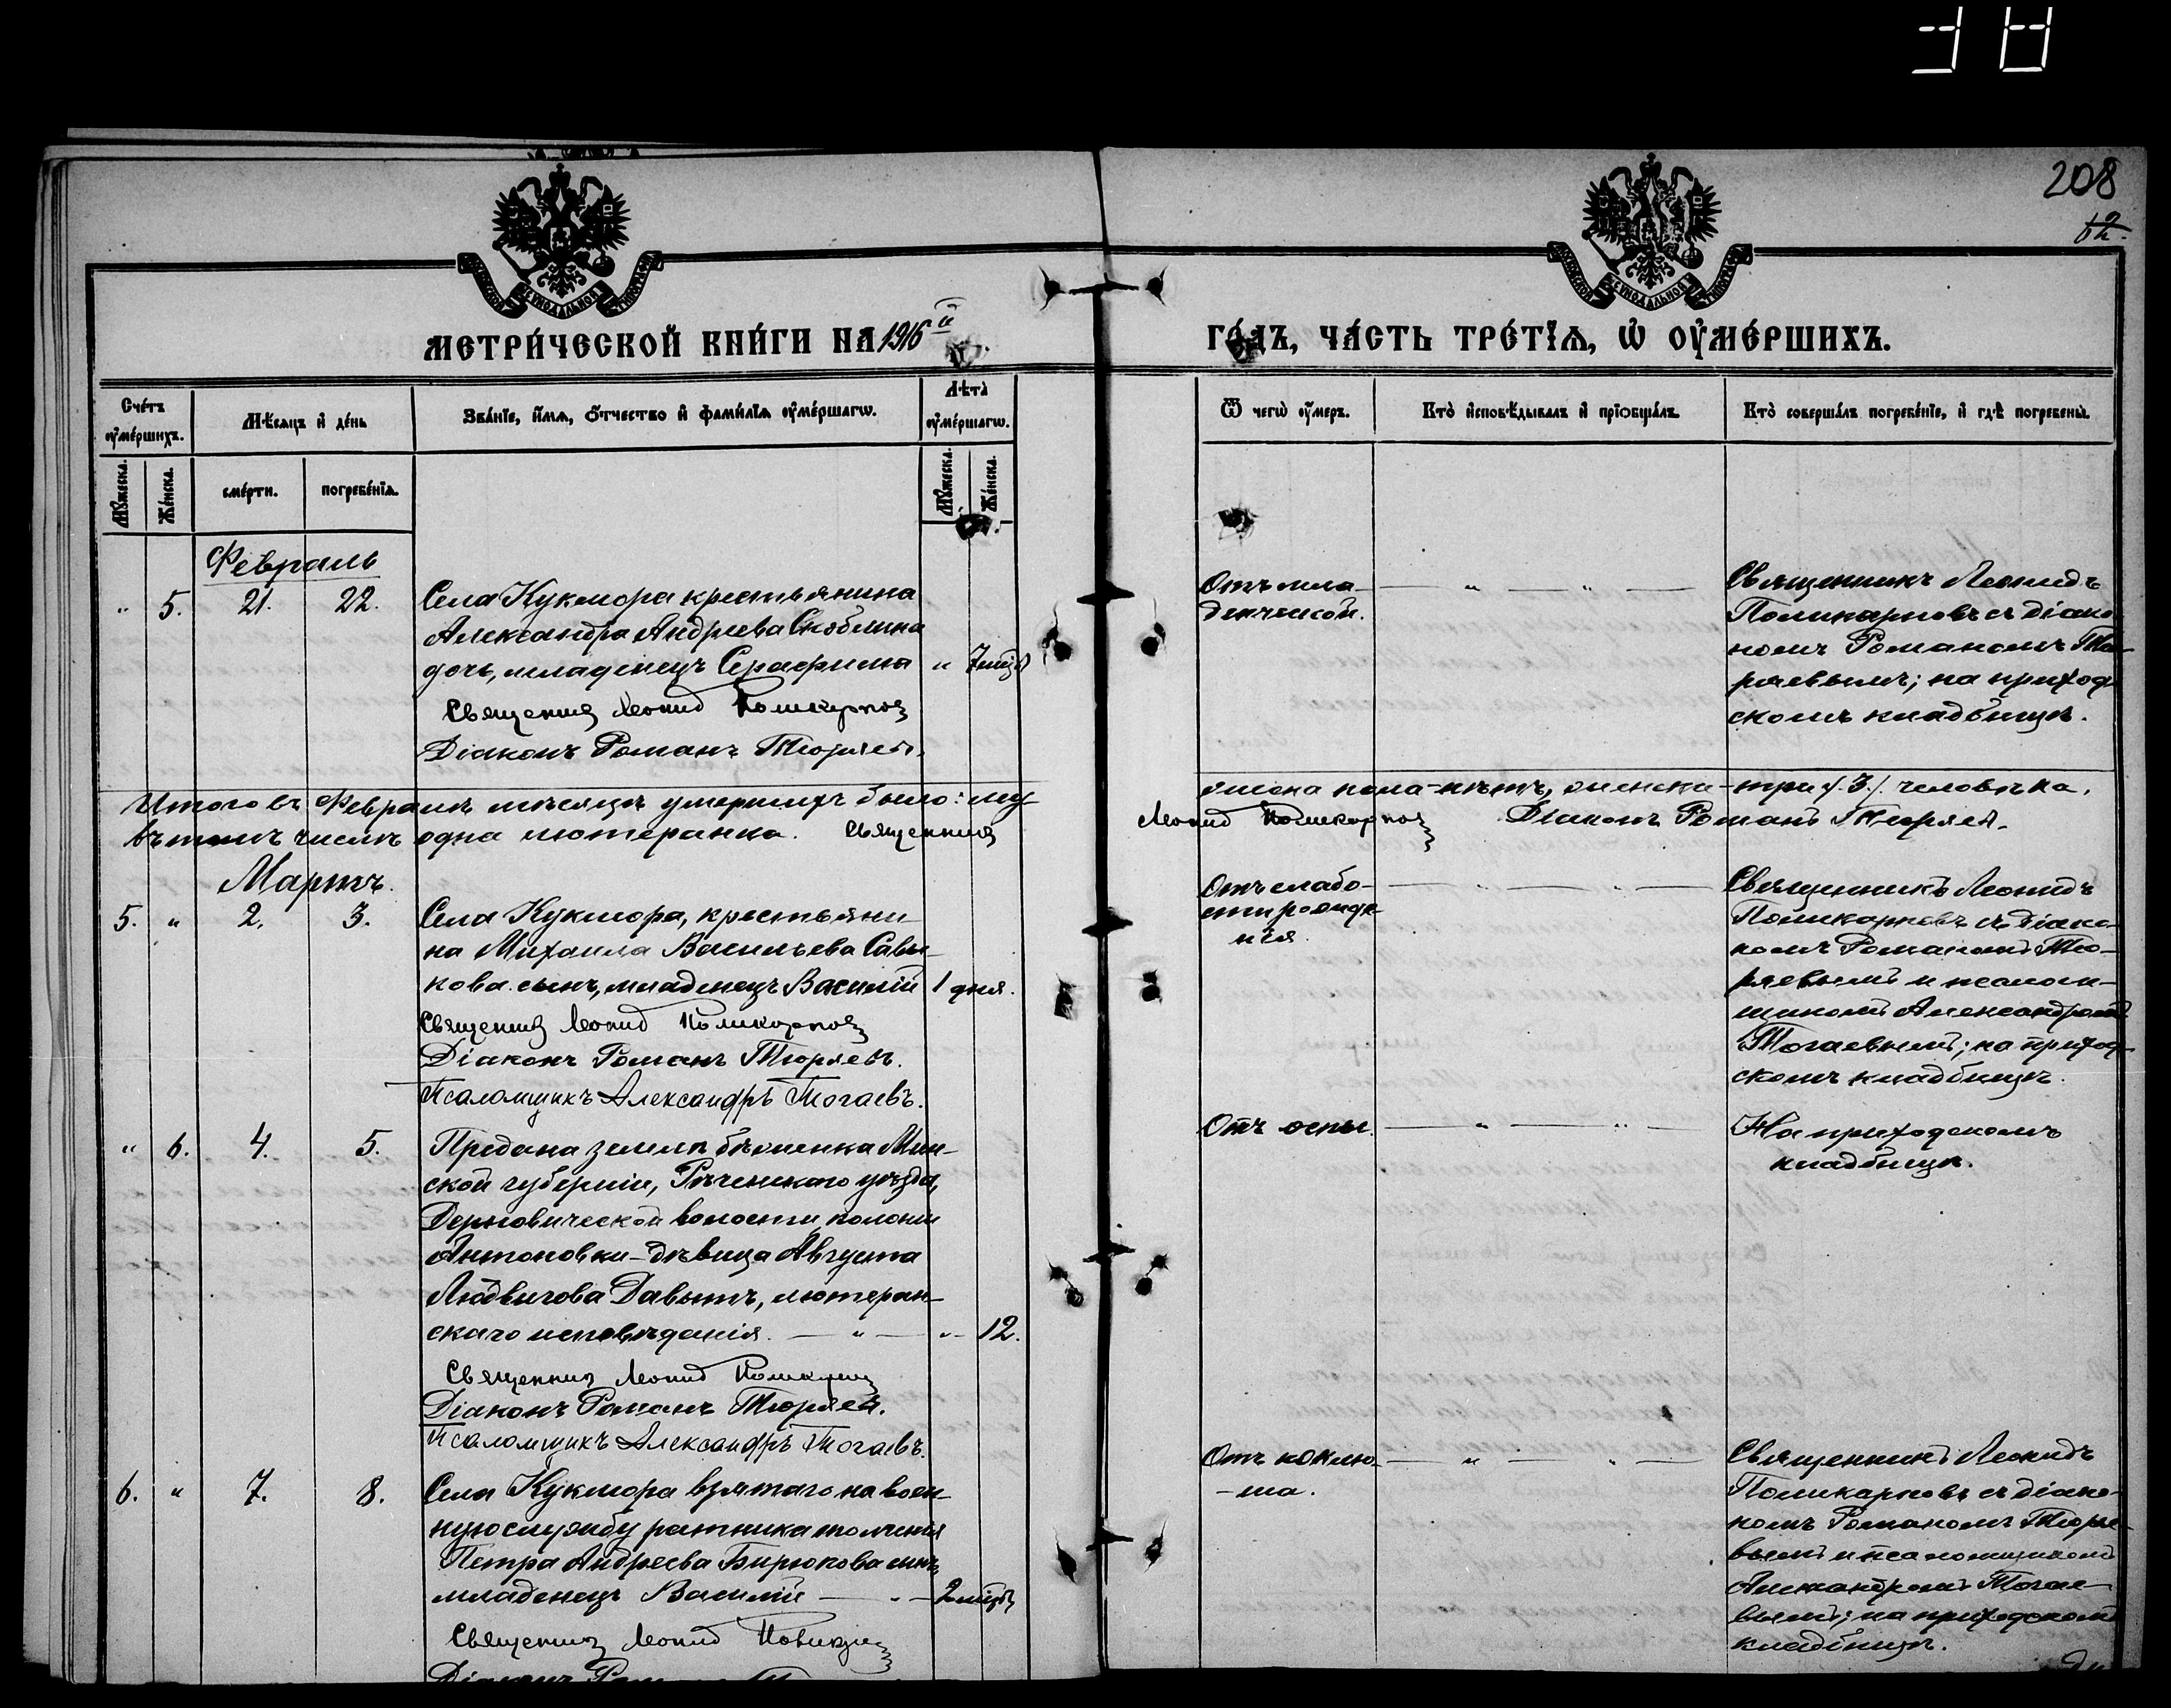 208
12.
МЕТРИ́ЧЕСКОЙ КНИ́ГИ НА 1916 й
ГО́ДЪ, ЧА́СТЬ ТРЕ́ТІѦ, Ѡ ОУ҆МЕ́РШИХЪ.
Сче́тъ оу҆ме́ршихъ.
Мѣ́сяцъ и҆ де́нь
Зва́ніе, и҆́мя, о҆́тчество и҆ фами́лія оу҆ме́ршагѡ.
Лѣта̀ оу҆ме́ршагѡ.
Ѿ чегѡ̀ оу҆́меръ.
Кто̀ и҆сповѣ́дывалъ и҆ прїобща́лъ.
Кто̀ соверша́лъ погребе́ніе, и҆ гдѣ̀ погребены̀.
Му́жеска.
Же́нска.
сме́рти.
погребе́нія.
Му́жеска.
Же́нска.
Февраль
" 5. 21. 22.
Села Кукмора крестьянина
Александра Андреева Скоблина
дочь, младенецъ Серафима " 7 мѣс.
Священникъ Леонид Поликарповъ
Діаконъ Романъ Тюряевъ.
Отъ мла-
денческой.
Священникъ Леонидъ
Поликарповъ съ діако-
номъ Романомъ Тю-
ряевымъ; на приход-
скомъ кладбищѣ.
Итого въ Февралѣ мѣсяцѣ умершихъ было: му-
жеска пола - нѣтъ, женска - три /3/ человѣка,
въ томъ числѣ одна лютеранка. Священникъ
Леонид Поликарповъ Діаконъ Романъ Тюряевъ.
Мартъ.
5. " 2. 3.
Села Кукмора, крестьяни-
на Михаила Васильева Савы-
кова сынъ, младенецъ Василій 1 дня.
Священникъ Леонид Поликарповъ
Діаконъ Романъ Тюряевъ.
Псаломщикъ Александръ Тогаевъ.
Отъ слабо-
сти рожде-
нія.
Священникъ Леонидъ
Поликарповъ съ діако-
номъ Романомъ Тю-
ряевымъ и псалом-
щикомъ Александромъ
Тогаевымъ; на приход-
скомъ кладбищѣ.
" 6. 4. 5.
Предана землѣ бѣженка Мин-
ской губерніи, Рѣчицкаго уѣзда,
Дерновической волости, колоніи
Антоновки - дѣвица Августа
Людвигова Давытъ, лютеран-
скаго исповѣданія. " 12.
Священникъ Леонид Поликарповъ
Діаконъ Романъ Тюряевъ.
Псаломщикъ Александръ Тогаевъ.
Отъ оспы.
На приходскомъ
кладбищѣ.
6. " 7. 8.
Села Кукмора взятаго на воен-
ную службу ратника ополченія
Петра Андреева Бирюкова сынъ,
младенецъ Василій 2 мѣс.
Священникъ Леонид Поликарповъ
Діаконъ Романъ
Отъ коклю-
-ша.
Священникъ Леонидъ
Поликарповъ съ діако-
номъ Романомъ Тюряе-
вымъ и псаломщикомъ
Александромъ Тогае-
вымъ; на приходскомъ
кладбищѣ.